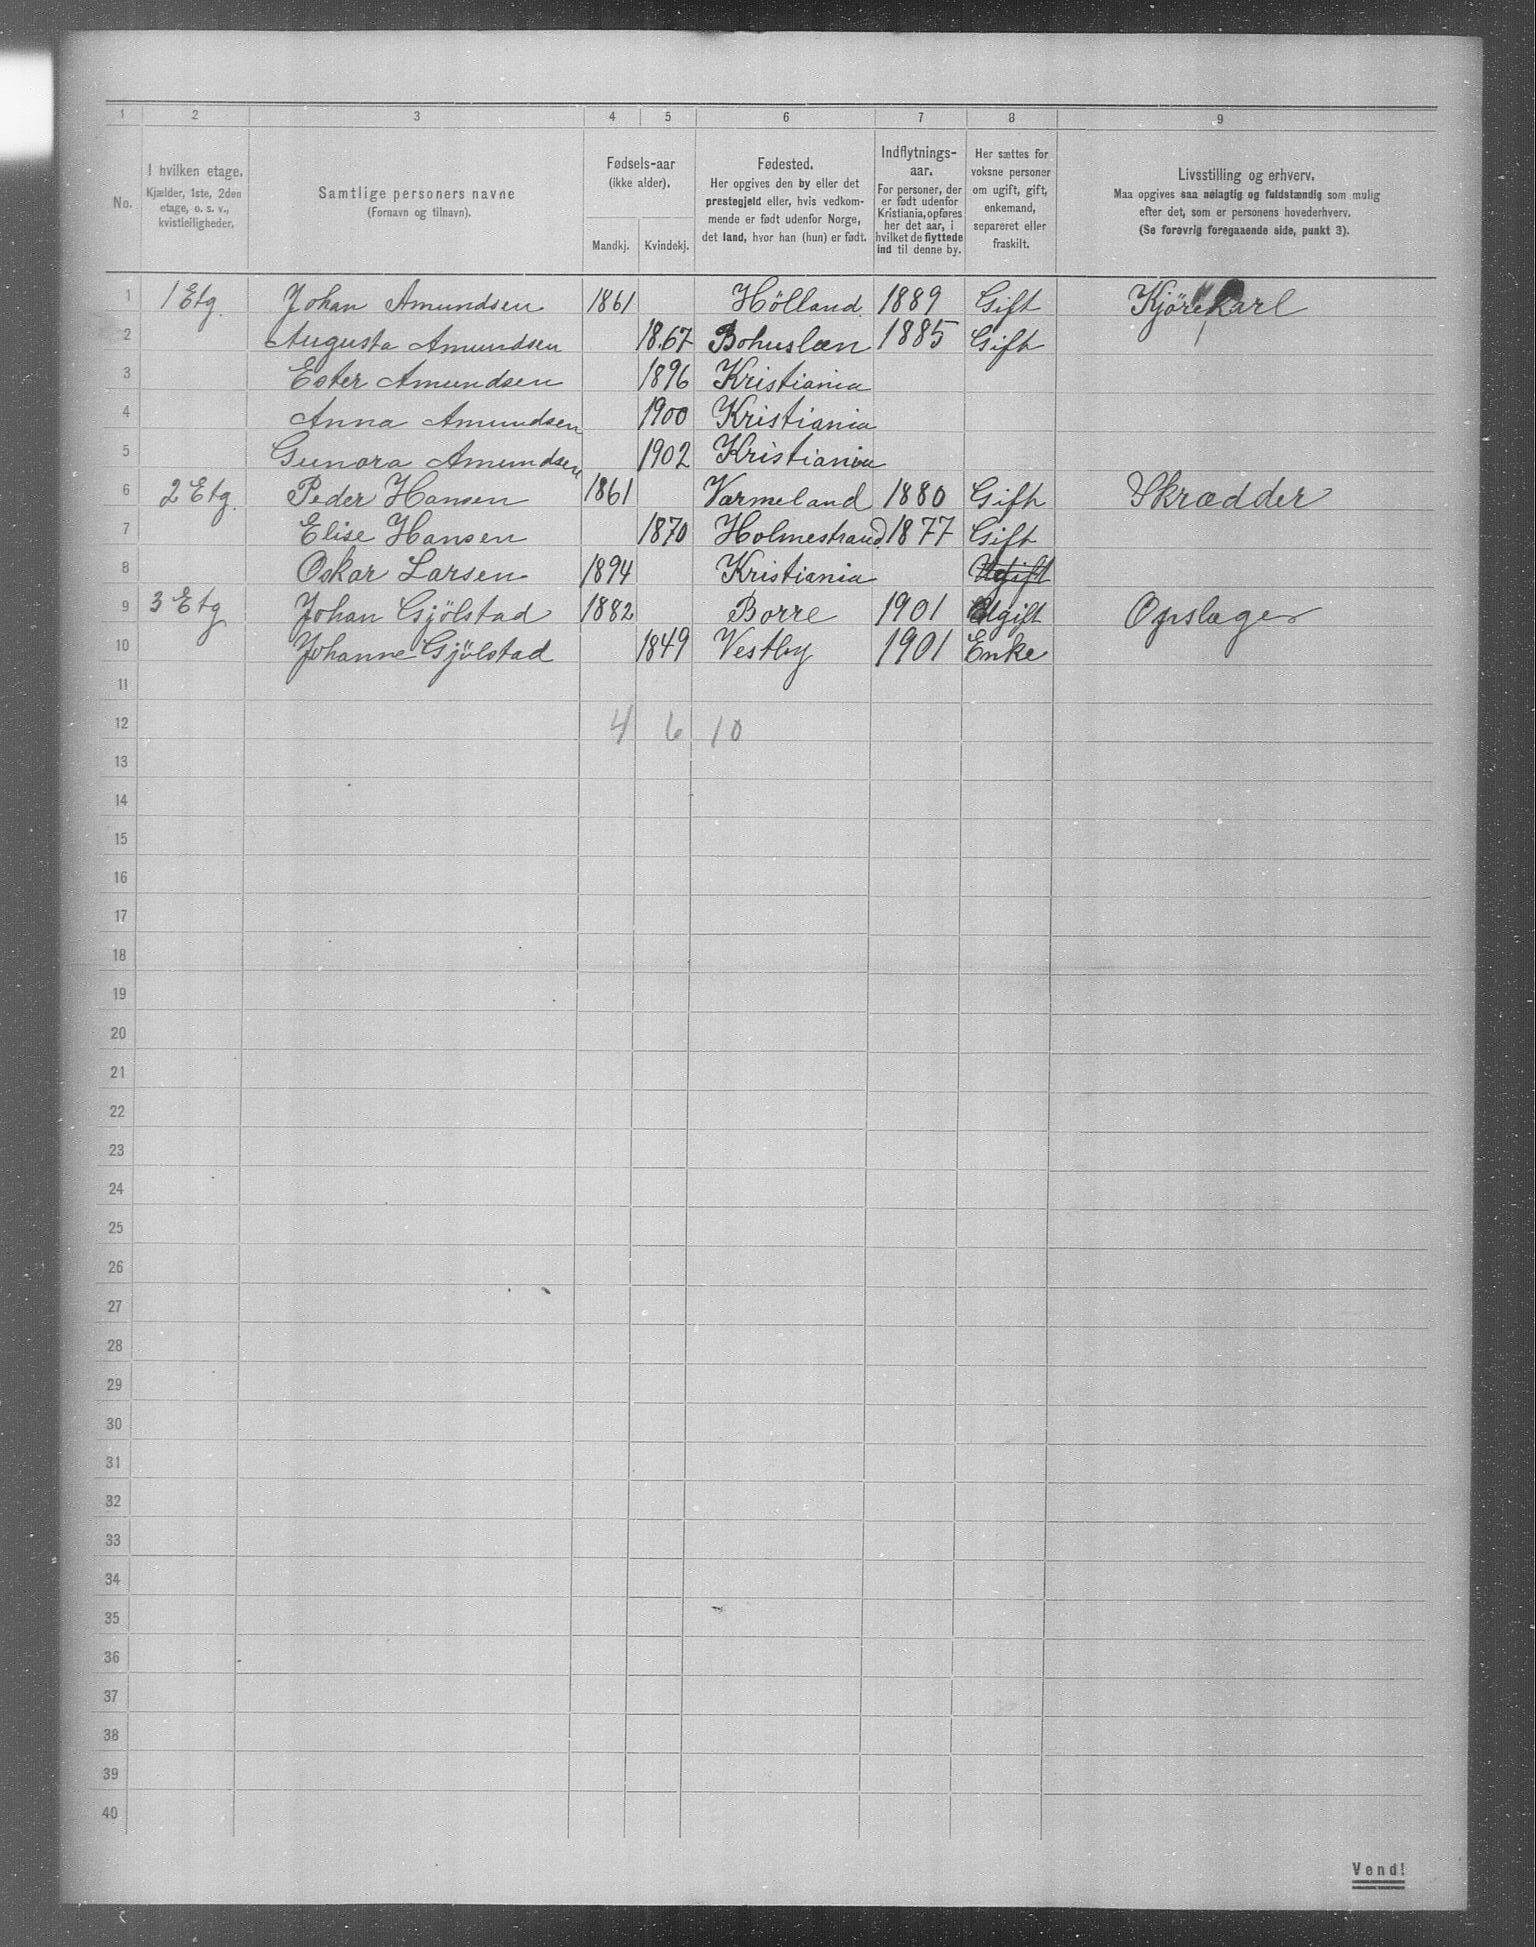 1 2 3 4 5 6 7 8 9
No.
I hvilken etage.
Kjælder, 1ste, 2den
etage, o. s. v.,
kvistleiligheder.
Samtlige personers navne
(Fornavn og tilnavn).
Fødsels-aar
(ikke alder).
Mandkj. Kvindekj.
Fødested.
Her opgives den by eller det
prestegjeld eller, hvis vedkom-
mende er født udenfor Norge,
det land, hvor han (hun) er født.
Indflytnings-
aar.
For personer, der
er født udenfor
Kristiania, opføres
her det aar, i
hvilket de flyttede
ind til denne by.
Her sættes for
voksne personer
om ugift, gift,
enkemand,
separeret eller
fraskilt.
Livsstilling og erhverv.
Maa opgives saa nøiagtig og fuldstændig som mulig
efter det, som er personens hovederhverv.
(Se forøvrig foregaaende side, punkt 3).
1 1 Etg. Johan Amundsen 1861 Hölland 1889 Gift Kjörekarl
2 Augusta Amundsen 1867 Bohuslæn 1885 Gift
3 Ester Amundsen 1896 Kristiania
4 Anna Amundsen 1900 Kristiania
5 Gunora Amundsen 1902 Kristiania
6 2 Etg. Peder Hansen 1861 Varmeland 1880 Gift Skrædder
7 Elise Hansen 1870 Holmestrand 1877 Gift
8 Oskar Larsen 1894 Kristiania Ugift
9 3 Etg Johan Gjölstad 1882 Borre 1901 Ugift Opslager
10 Johanne Gjölstad 1849 Vestby 1901 Enke
11
12 4 6 10
13
14
15
16
17
18
19
20
21
22
23
24
25
26
27
28
29
30
31
32
33
34
35
36
37
38
39
40
Vend!